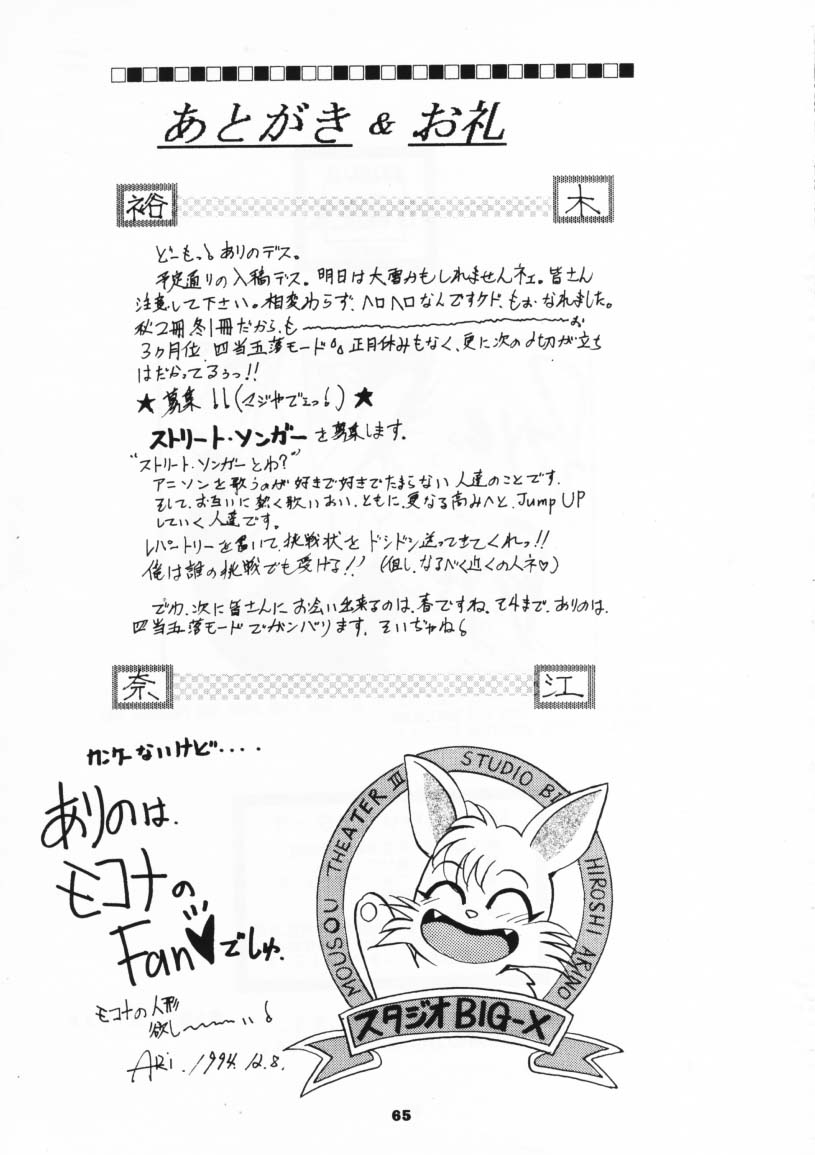 あとがき & お礼
裕 木
どーもっ! ありのデス。
予定通りの入稿デス。明日は大雪かもしれませんネェ。皆さん
注意して下さい。相変わらず、ヘロヘロなんですケド、もぉ、なれました。
秋2冊冬1冊だから、も〜〜〜〜〜お
3ヶ月位、四当五落モード。。正月休みもなく、更に次の〆切が立ち
はだかってるぅっ!!
★ 募集!!(マジやでェっ!) ★
ストリート・ソンガーを募集します。
"ストリート・ソンガーとわ?"
アニソンを歌うのが好きで好きでたまらない人達のことです。
そして、お互いに熱く歌いあい、ともに、更なる高みへと、Jump UP
していく人達です。
レパートリーを書いて、挑戦状をドシドシ送ってきてくれっ!!
俺は誰の挑戦でも受ける!! (但し、なるべく近くの人ネ♡)
でわ、次に皆さんにお会い出来るのは、春ですね。それまで、ありのは、
四当五落モードでガンバります。そいぢゃね!
奈 江
カンケーないけど‥‥
ありのは、
モコナの
Fan♥でしゅ。
モコナの人形
欲し〜〜い!
ARi. 1994. 12. 8.
MOUSOU THEATER III
STUDIO BI
HIROSHI ARINO
スタジオBIG-X
65